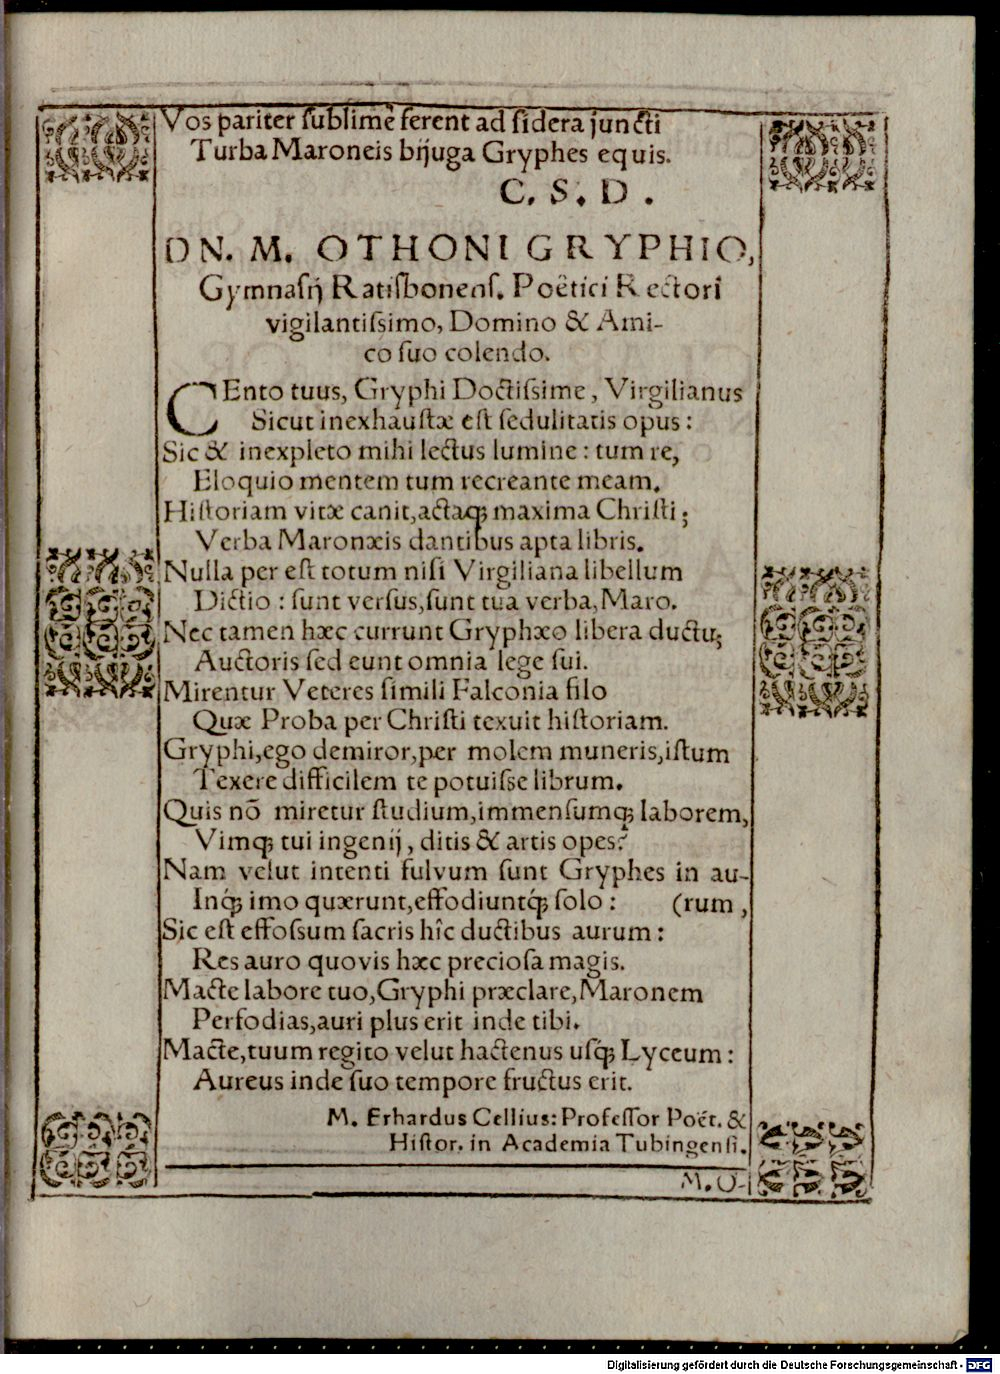 Vos pariter ſublimè ferent ad ſidera juncti
Turba Maroneis bijuga Gryphes equis.
C. S. D.
DN. M. OTHONI GRYPHIO,
Gymnaſij Ratiſbonenſ. Poëtici Rectori
vigilantiſsimo, Domino & Ami-
co ſuo colendo.
CEnto tuus, Gryphi Doctiſsime, Virgilianus
Sicut inexhauſtæ eſt ſedulitatis opus:
Sic & inexpleto mihi lectus lumine: tum re,
Eloquio mentem tum recreante meam.
Hiſtoriam vitæ canit, actaq; maxima Chriſti;
Verba Maronæis dantibus apta libris.
Nulla per eſt totum niſi Virgiliana libellum
Dictio: ſunt verſus, ſunt tua verba, Maro.
Nec tamen hæc currunt Gryphæo libera ductu;
Auctoris ſed eunt omnia lege ſui.
Mirentur Veteres ſimili Falconia filo
Quæ Proba per Chriſti texuit hiſtoriam.
Gryphi, ego demiror, per molem muneris, iſtum
Texere difficilem te potuiſse librum.
Quis nō miretur ſtudium, immenſumq; laborem,
Vimq; tui ingenij, ditis & artis opes?
Nam velut intenti fulvum ſunt Gryphes in au-
Inq́; imo quærunt, effodiuntq́; ſolo: (rum,
Sic eſt effoſsum ſacris hîc ductibus aurum:
Res auro quovis hæc precioſa magis.
Macte labore tuo, Gryphi præclare, Maronem
Perfodias, auri plus erit inde tibi.
Macte, tuum regito velut hactenus uſq; Lyceum:
Aureus inde ſuo tempore fructus erit.
M. Erhardus Cellius: Profeſſor Poët. &
Hiſtor. in Academia Tubingenſi.
M. O-
Digitalisierung gefördert durch die Deutsche Forschungsgemeinschaft - DFG